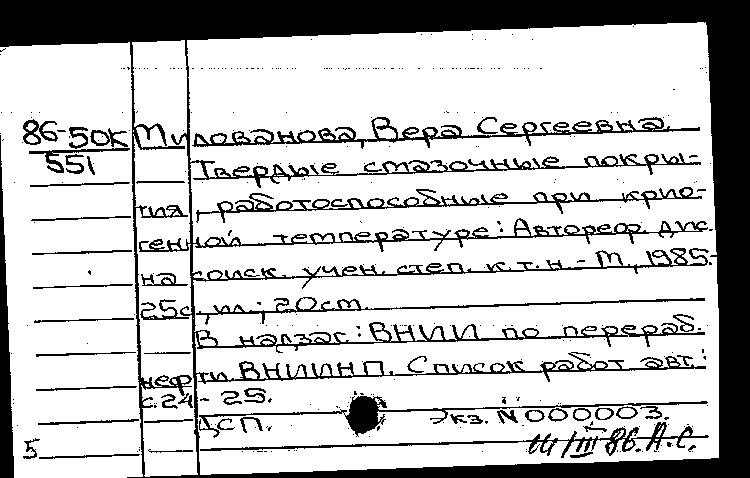 86-50К Милованова, Вера Сергеевна.
551 Твердые смазочные покры-
тия, работоспособные при крио-
генной температуре: Автореф. дис.
на соиск. учен. степ. к.т.н. - М., 1985.-
25с., ил.; 20см.
В надзаг: ВНИИ по перераб.
нефти ВНИИНП. Список работ авт.:
с.24-25.
ДСП. Экз. N 000003.
5 III 86. А.С.